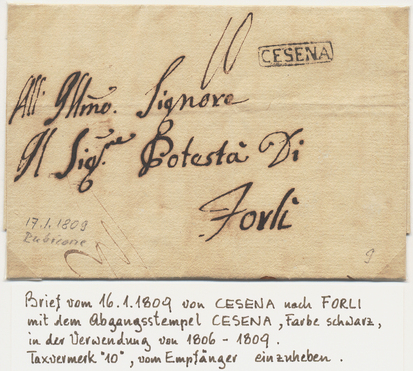 10
CESENA
All Illmo. Signore
Il Sig.re Potestà Di
Forlì
17.1.1809
Rubicone
9
Brief vom 16.1.1809 von CESENA nach FORLI
mit dem Abgangsstempel CESENA, Farbe schwarz,
in der Verwendung von 1806 - 1809.
Taxvermerk "10", vom Empfänger einzuheben.